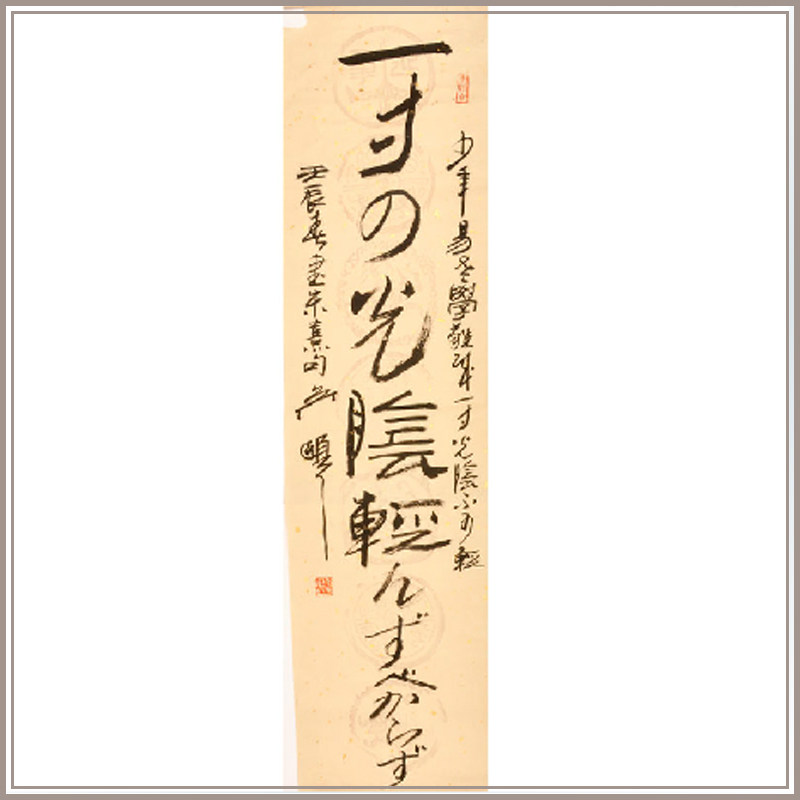 少年易老學難成一寸光陰不可輕
一寸の光陰輕んずべからず
壬辰春書朱熹句